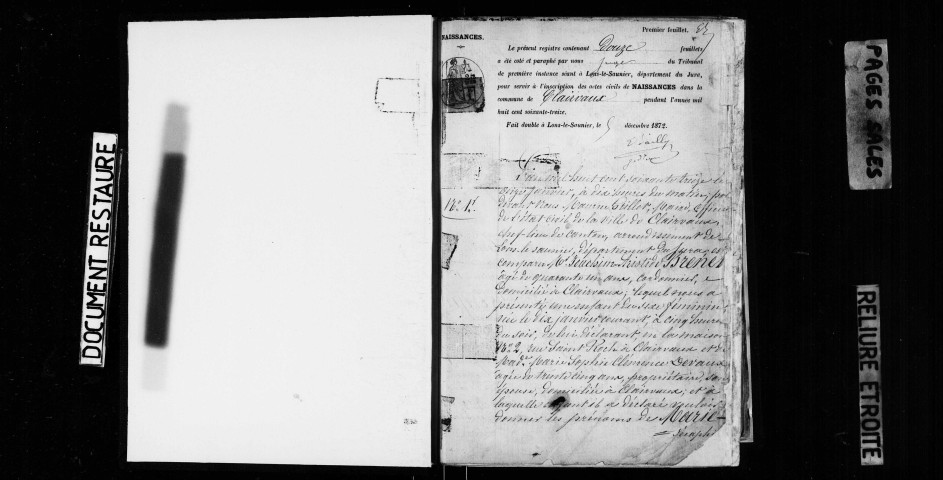 DOCUMENT RESTAURE
NAISSANCES.
Premier feuillet.
Le présent registre contenant Douze feuillets
a été coté et paraphé par nous juge du Tribunal
de première instance séant à Lons-le-Saunier, département du Jura,
pour servir à l'inscription des actes civils de NAISSANCES dans la
commune de Clairvaux pendant l'année mil
huit cent soixante-treize.
Fait double à Lons-le-Saunier, le 5 décembre 1872.
N° 1.
L'an mil huit cent soixante treize le
janvier, à dix heures du matin, par
devant Nous Maire, Officier
de l'état civil de la ville de Clairvaux,
chef lieu de canton, arrondissement de
Lons le saunier, département du Jura, est
comparu Mr Joachim Brenet
âgé de quarante un ans, cordonnier,
domicilié à Clairvaux; lequel nous a
présenté une enfant du sexe féminin
née le dix janvier courant, à cinq heures
du soir, de lui déclarant en sa maison
N° 2, rue Saint Roch à Clairvaux et de
Made Marie Sophie Clémence Devaux
âgée de trente cinq ans, propriétaire, son
épouse, domiciliée à Clairvaux, et à
laquelle enfant il a déclaré vouloir
donner les prénoms de Marie-
PAGES SALES
RELIURE ETROITE